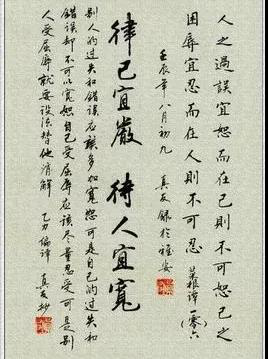 人之過誤宜恕而在己則不可恕己之
困辱宜忍而在人則不可忍 菜根譚(一〇六)
壬辰年八月初九 真友錄於雅安
律己宜嚴 待人宜寬
别人的过失和錯誤应該多加寬恕可是自己的过失和
錯誤却不可以寬恕自己受屈辱应該尽量忍受可是别
人受屈辱就要设法替他消解 乙力编譯 真友抄